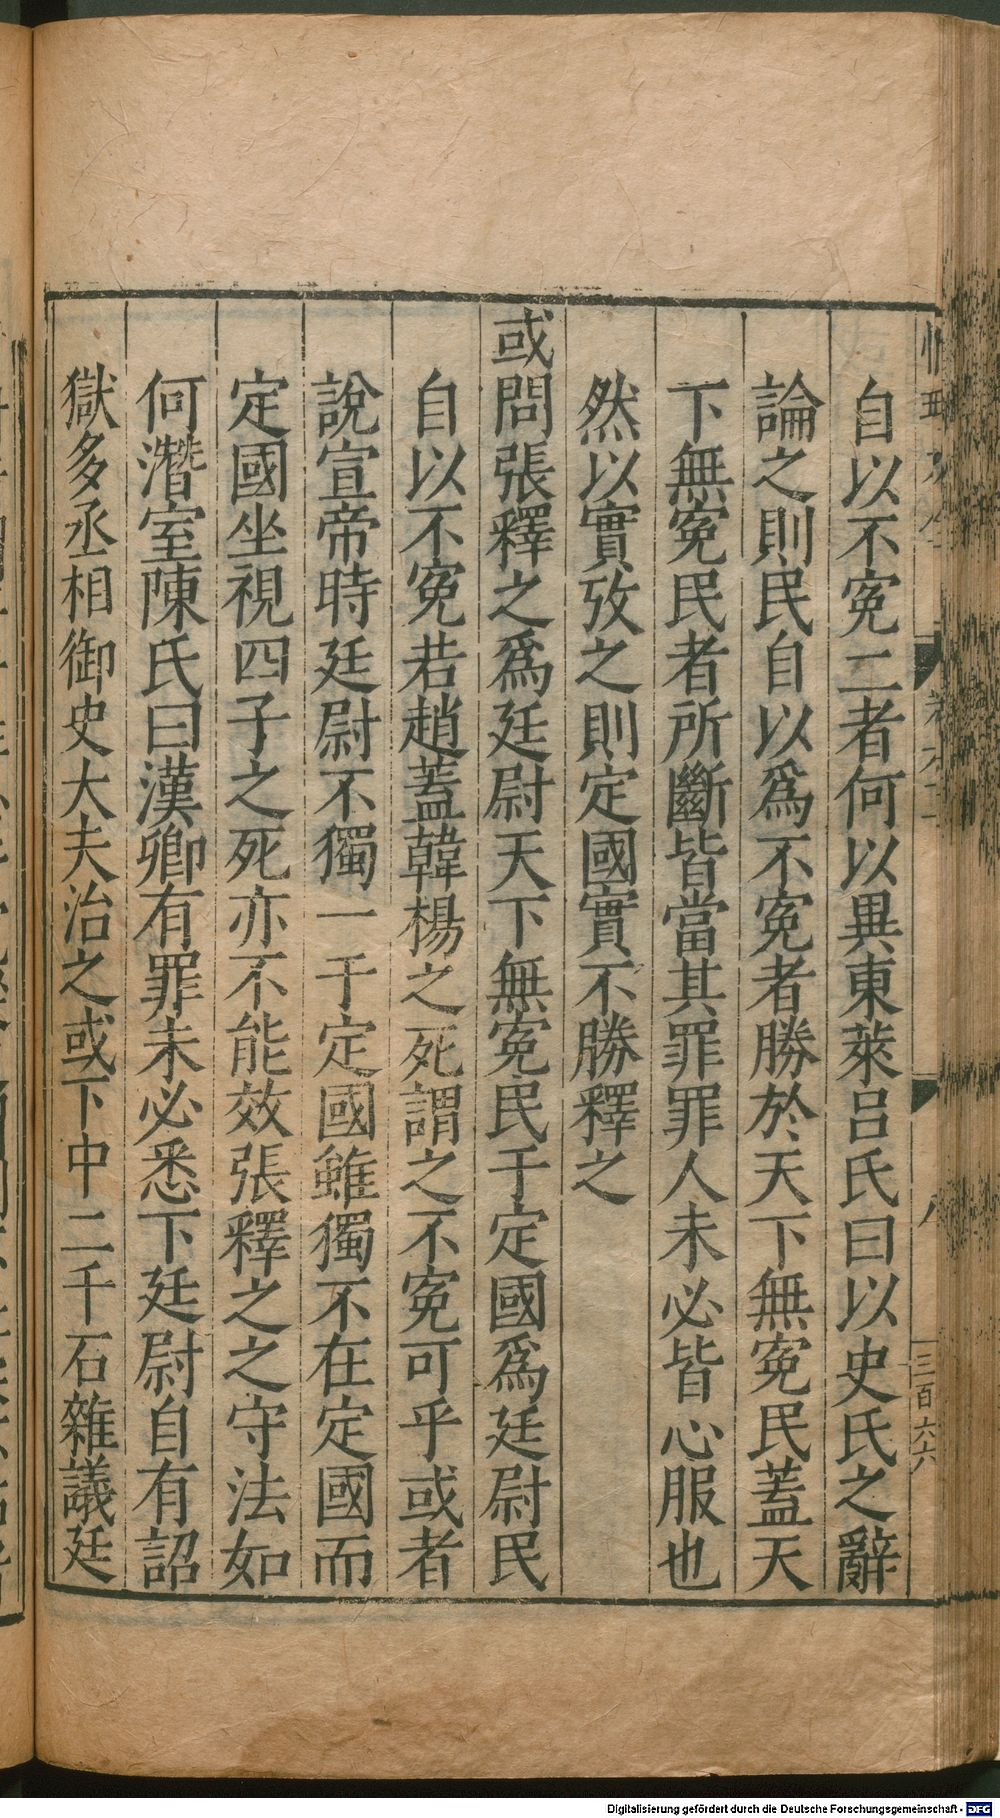 自以不寃二者何以異東萊呂氏曰以史氏之辭
論之則民自以爲不寃者勝於天下無寃民蓋天
下無寃民者所斷皆當其罪罪人未必皆心服也
然以實攷之則定國實不勝釋之
或問張釋之爲廷尉天下無寃民于定國爲廷尉民
自以不寃若趙蓋韓楊之死謂之不寃可乎或者
說宣帝時廷尉不獨一于定國雖獨不在定國而
定國坐視四子之死亦不能效張釋之之守法如
何潛室陳氏曰漢卿有罪未必悉下廷尉自有詔
獄多丞相御史大夫治之或下中二千石雜議廷
八
三百六六
Digitalisierung gefördert durch die Deutsche Forschungsgemeinschaft - DFG